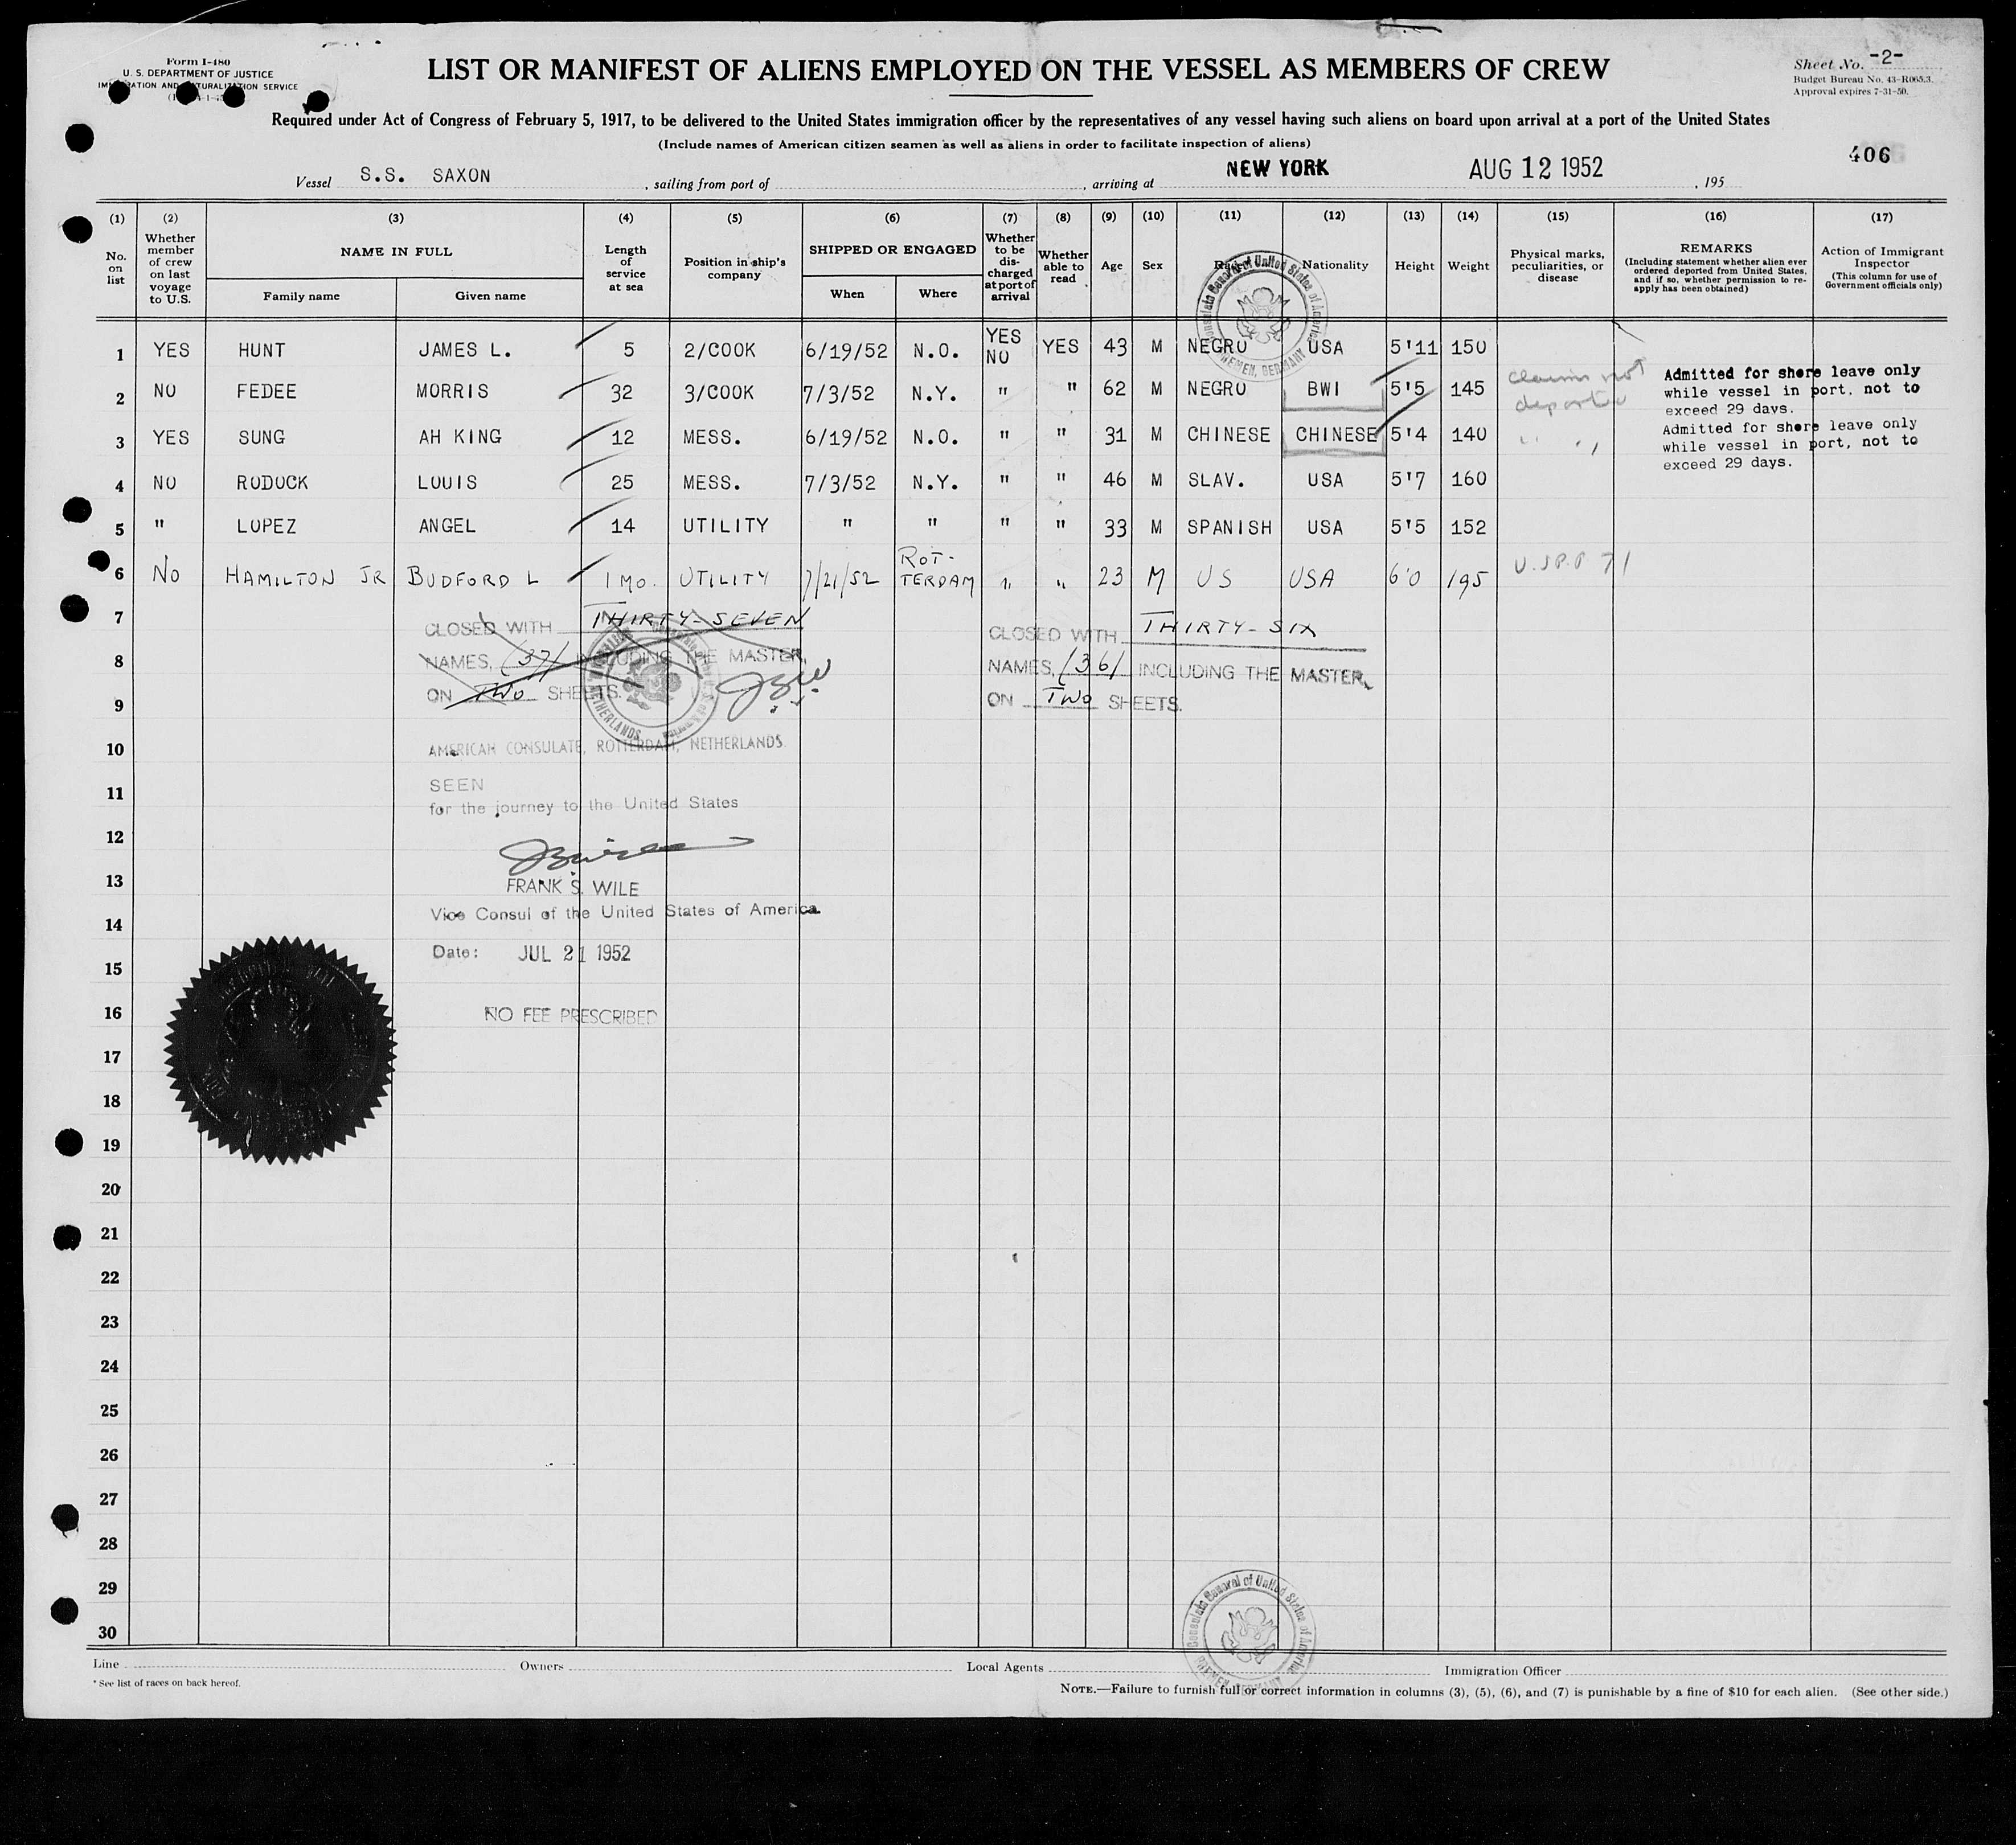 Form I-480
U. S. DEPARTMENT OF JUSTICE
IMMIGRATION AND NATURALIZATION SERVICE
LIST OR MANIFEST OF ALIENS EMPLOYED ON THE VESSEL AS MEMBERS OF CREW
Sheet No. -2-
Budget Bureau No. 43-R065.3.
Approval expires 7-31-50.
Required under Act of Congress of February 5, 1917, to be delivered to the United States immigration officer by the representatives of any vessel having such aliens on board upon arrival at a port of the United States
(Include names of American citizen seamen as well as aliens in order to facilitate inspection of aliens)
406
Vessel S.S. SAXON, sailing from port of , arriving at NEW YORK AUG 12 1952, 195
(1) (2) (3) (4) (5) (6) (7) (8) (9) (10) (11) (12) (13) (14) (15) (16) (17)
No. on list
Whether member of crew on last voyage to U.S.
NAME IN FULL
Family name
Given name
Length of service at sea
Position in ship's company
SHIPPED OR ENGAGED
When
Where
Whether to be discharged at port of arrival
Whether able to read
Age
Sex
Nationality
Height
Weight
Physical marks, peculiarities, or disease
REMARKS
(Including statement whether alien ever ordered deported from United States, and if so, whether permission to reapply has been obtained)
Action of Immigrant Inspector
(This column for use of Government officials only)
1 YES HUNT JAMES L. 5 2/COOK 6/19/52 N.O. YES NO YES 43 M NEGRO USA 5'11 150
2 NO FEDEE MORRIS 32 3/COOK 7/3/52 N.Y. " " 62 M NEGRO BWI 5'5 145 claims not deported
Admitted for shore leave only
while vessel in port, not to
exceed 29 days.
3 YES SUNG AH KING 12 MESS. 6/19/52 N.O. " " 31 M CHINESE CHINESE 5'4 140 " "
Admitted for shore leave only
while vessel in port, not to
exceed 29 days.
4 NO RODOCK LOUIS 25 MESS. 7/3/52 N.Y. " " 46 M SLAV. USA 5'7 160
5 " LOPEZ ANGEL 14 UTILITY " " " " 33 M SPANISH USA 5'5 152
6 NO HAMILTON JR BUDFORD L 1 MO. UTILITY 7/21/52 ROT-TERDAM " " 23 M US USA 6'0 195
7
8
9
10
11
12
13
14
15
16
17
18
19
20
21
22
23
24
25
26
27
28
29
30
CLOSED WITH THIRTY-SEVEN
NAMES, (37) INCLUDING THE MASTER,
ON TWO SHEETS.
CLOSED WITH THIRTY-SIX
NAMES, (36) INCLUDING THE MASTER,
ON TWO SHEETS.
AMERICAN CONSULATE, ROTTERDAM, NETHERLANDS.
SEEN
for the journey to the United States
FRANK S. WILE
Vice Consul of the United States of America
Date: JUL 21 1952
NO FEE PRESCRIBED
Consulate General of United States of America
BREMEN, GERMANY
Consulate General of United States of America
BREMEN, GERMANY
Line Owners Local Agents Immigration Officer
* See list of races on back hereof.
NOTE.—Failure to furnish full or correct information in columns (3), (5), (6), and (7) is punishable by a fine of $10 for each alien. (See other side.)